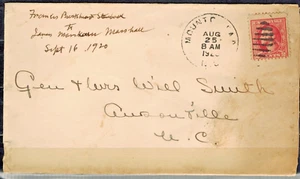 Frances Burkhead
to
James Marshall
Sept 16, 1920
MOUNT
AUG
25
8 AM
Gen & Mrs Will Smith
Ansonville
N. C.